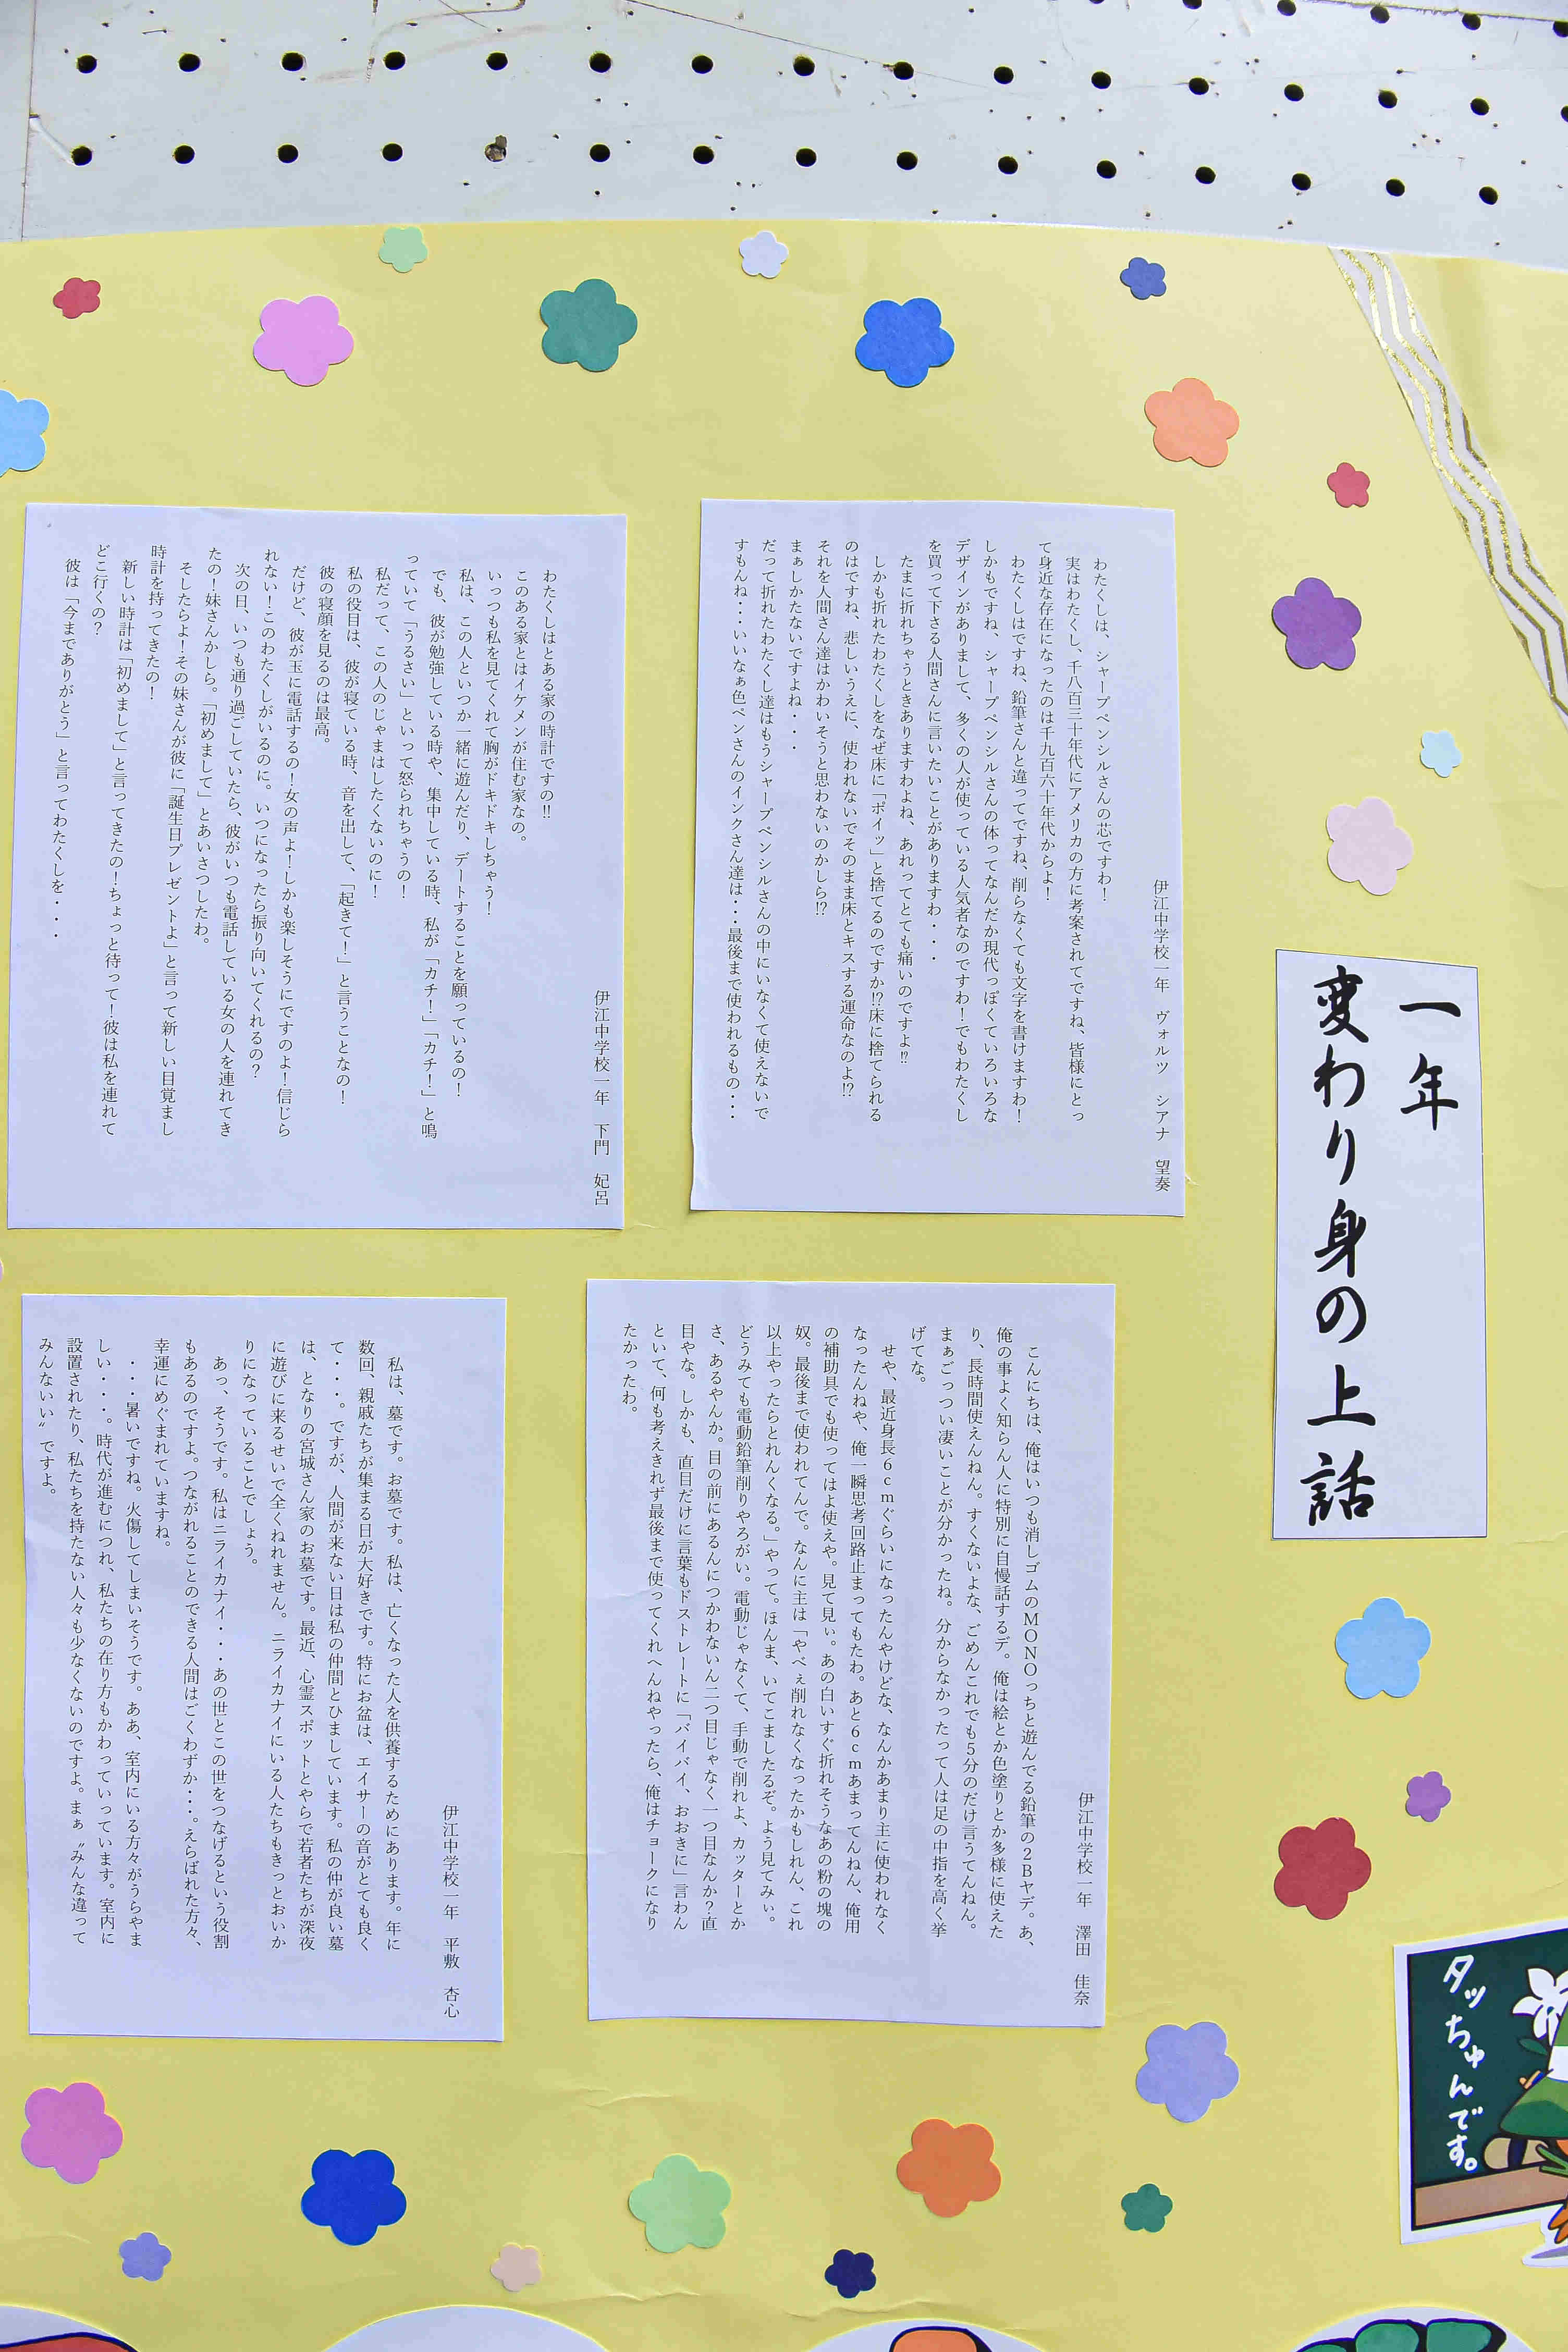 一年
変わり身の上話
伊江中学校一年　ヴォルツ　シアナ　望奏
わたくしは、シャープペンシルさんの芯ですわ！
実はわたくし、千八百三十年代にアメリカの方に考案されてですね、皆様にとっ
て身近な存在になったのは千九百六十年代からよ！
わたくしはですね、鉛筆さんと違ってですね、削らなくても文字を書けますわ！
しかもですね、シャープペンシルさんの体ってなんだか現代っぽくていろいろな
デザインがありまして、多くの人が使っている人気者なのですわ！でもわたくし
を買って下さる人間さんに言いたいことがありますわ・・・
たまに折れちゃうときありますわよね、あれってとても痛いのですよ⁉
しかも折れたわたくしをなぜ床に「ポイッ」と捨てるのですか⁉床に捨てられる
のはですね、悲しいうえに、使われないでそのまま床とキスする運命なのよ⁉
それを人間さん達はかわいそうと思わないのかしら⁉
まぁしかたないですよね・・・
だって折れたわたくし達はもうシャープペンシルさんの中にいなくて使えないで
すもんね・・・いいなぁ色ペンさんのインクさん達は・・・最後まで使われるもの・・・
伊江中学校一年　下門　妃呂
わたくしはとある家の時計ですの‼
このある家とはイケメンが住む家なの。
いっつも私を見てくれて胸がドキドキしちゃう！
私は、この人といつか一緒に遊んだり、デートすることを願っているの！
でも、彼が勉強している時や、集中している時、私が「カチ！」「カチ！」と鳴
っていて「うるさい」といって怒られちゃうの！
私だって、この人のじゃまはしたくないのに！
私の役目は、彼が寝ている時、音を出して、「起きて！」と言うことなの！
彼の寝顔を見るのは最高。
だけど、彼が玉に電話するの！女の声よ！しかも楽しそうにですのよ！信じら
れない！このわたくしがいるのに。いつになったら振り向いてくれるの？
次の日、いつも通り過ごしていたら、彼がいつも電話している女の人を連れてき
たの！妹さんかしら。「初めまして」とあいさつしたわ。
そしたらよ！その妹さんが彼に「誕生日プレゼントよ」と言って新しい目覚まし
時計を持ってきたの！
新しい時計は「初めまして」と言ってきたの！ちょっと待って！彼は私を連れて
どこ行くの？
彼は「今までありがとう」と言ってわたくしを・・・
伊江中学校一年　澤田　佳奈
こんにちは、俺はいつも消しゴムのＭＯＮＯっちと遊んでる鉛筆の２Ｂヤデ。あ、
俺の事よく知らん人に特別に自慢話するデ。俺は絵とか色塗りとか多様に使えた
り、長時間使えんねん。すくないよな、ごめんこれでも５分のだけ言うてんねん。
まぁごっつい凄いことが分かったね。分からなかったって人は足の中指を高く挙
げてな。
せや、最近身長６ｃｍぐらいになったんやけどな、なんかあまり主に使われなく
なったんねや、俺一瞬思考回路止まってもたわ。あと６ｃｍあまってんねん、俺用
の補助具でも使ってはよ使えや。見て見ぃ。あの白いすぐ折れそうなあの粉の塊の
奴。最後まで使われてんで。なんに主は「やべぇ削れなくなったかもしれん、これ
以上やったらとれんくなる。」やって。ほんま、いてこましたるぞ。よう見てみぃ。
どうみても電動鉛筆削りやろがい。電動じゃなくて、手動で削れよ、カッターとか
さ、あるやんか。目の前にあるんにつかわないん二つ目じゃなく一つ目なんか？直
目やな。しかも、直目だけに言葉もドストレートに「バイバイ、おおきに」言わん
といて、何も考えきれず最後まで使ってくれへんねやったら、俺はチョークになり
たかったわ。
伊江中学校一年　平敷　杏心
私は、墓です。お墓です。私は、亡くなった人を供養するためにあります。年に
数回、親戚たちが集まる日が大好きです。特にお盆は、エイサーの音がとても良く
て・・・。ですが、人間が来ない日は私の仲間とひましています。私の仲が良い墓
は、となりの宮城さん家のお墓です。最近、心霊スポットとやらで若者たちが深夜
に遊びに来るせいで全くねれません。ニライカナイにいる人たちもきっとおいか
りになっていることでしょう。
あっ、そうです。私はニライカナイ・・・あの世とこの世をつなげるという役割
もあるのですよ。つながれることのできる人間はごくわずか・・・。えらばれた方々、
幸運にめぐまれていますね。
・・・暑いですね。火傷してしまいそうです。ああ、室内にいる方々がうらやま
しい・・・。時代が進むにつれ、私たちの在り方もかわっていっています。室内に
設置されたり、私たちを持たない人々も少なくないのですよ。まぁ〝みんな違って
みんないい〟ですよ。
タッちゅんです。